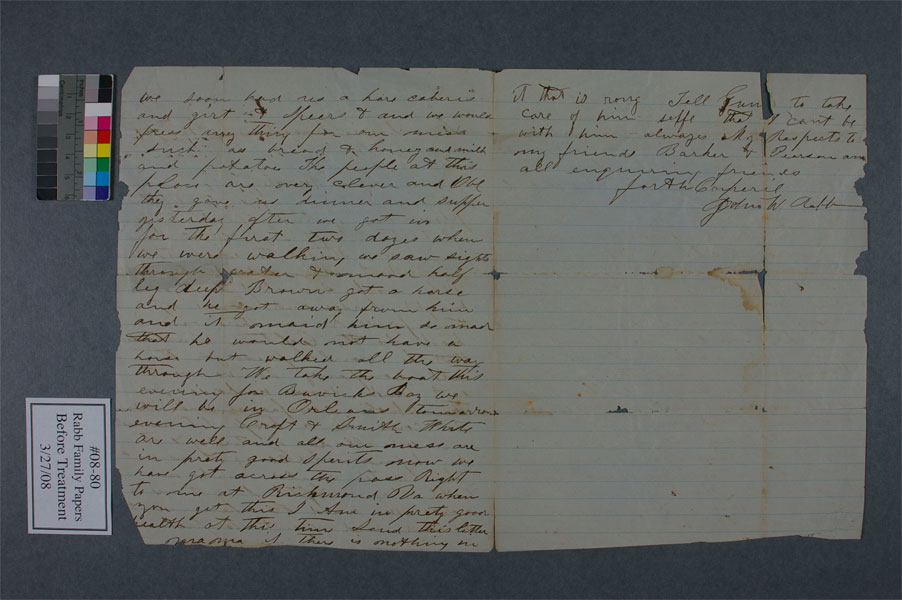 we soon had us a
and git & Speers & and we would
press any thing for our mess
Such as bread & honey and milk
and potatoes The people at this
place are over clever and
they gave us dinner and supper
yesterday after we got in
for the first two dayes when
we were walking we saw sights
through water & mud half
leg deep Brown got a horse
and he got away from him
and it maid him so mad
that he would not have a
horse but walked all the way
through We take the boat this
evening for Bay we
will be in Orleans tomorrow
evening Croft & Smith White
are well and all our mess are
in prety good Spirits now we
have got across the pass Right
to me at Richmond Va when
you get this I Am in prety good
health at this time Send this letter
mama if ther is nothing in
it that is rong Tell to take
care of him selfe that I cant be
with him always My Respects to
my friends Barker & Pearson and
all enquiring friends
John W Rabb
#08-80
Rabb Family Papers
Before Treatment
3/27/08